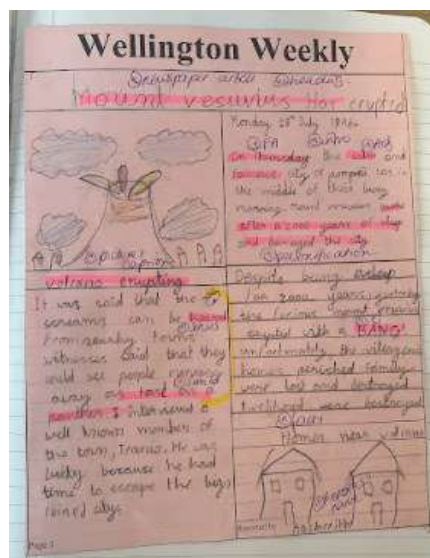 Wellington Weekly
newspaper article headline
Mount vesuvius Has erupted
Monday 28th July
On Thursday the and
famous city of pompeii was in
the middle of their busy
morning mount vesuvius
after a 2000 years of sleep
and damaged the city
personification
picture caption
volcano erupting
It was said that the
screams can be
From nearby towns
witnesses said that they
could see people running
away as fast as a
panther I interviewed a
well known member of
the town, Travis. He was
lucky because he had
time to escape the big
ruined city
Despite being asleep
for 2000 years yesterday
the furious mount vesuvius
erupted with a BANG!
unfortunately the villagers
homes perished family
were lost and destroyed
livelihood were destroyed
Homes near volcano
Page 1